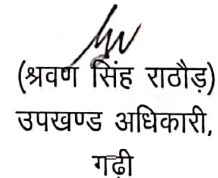 (श्रवण सिंह राठौड़)
उपखण्ड अधिकारी,
गढ़ी